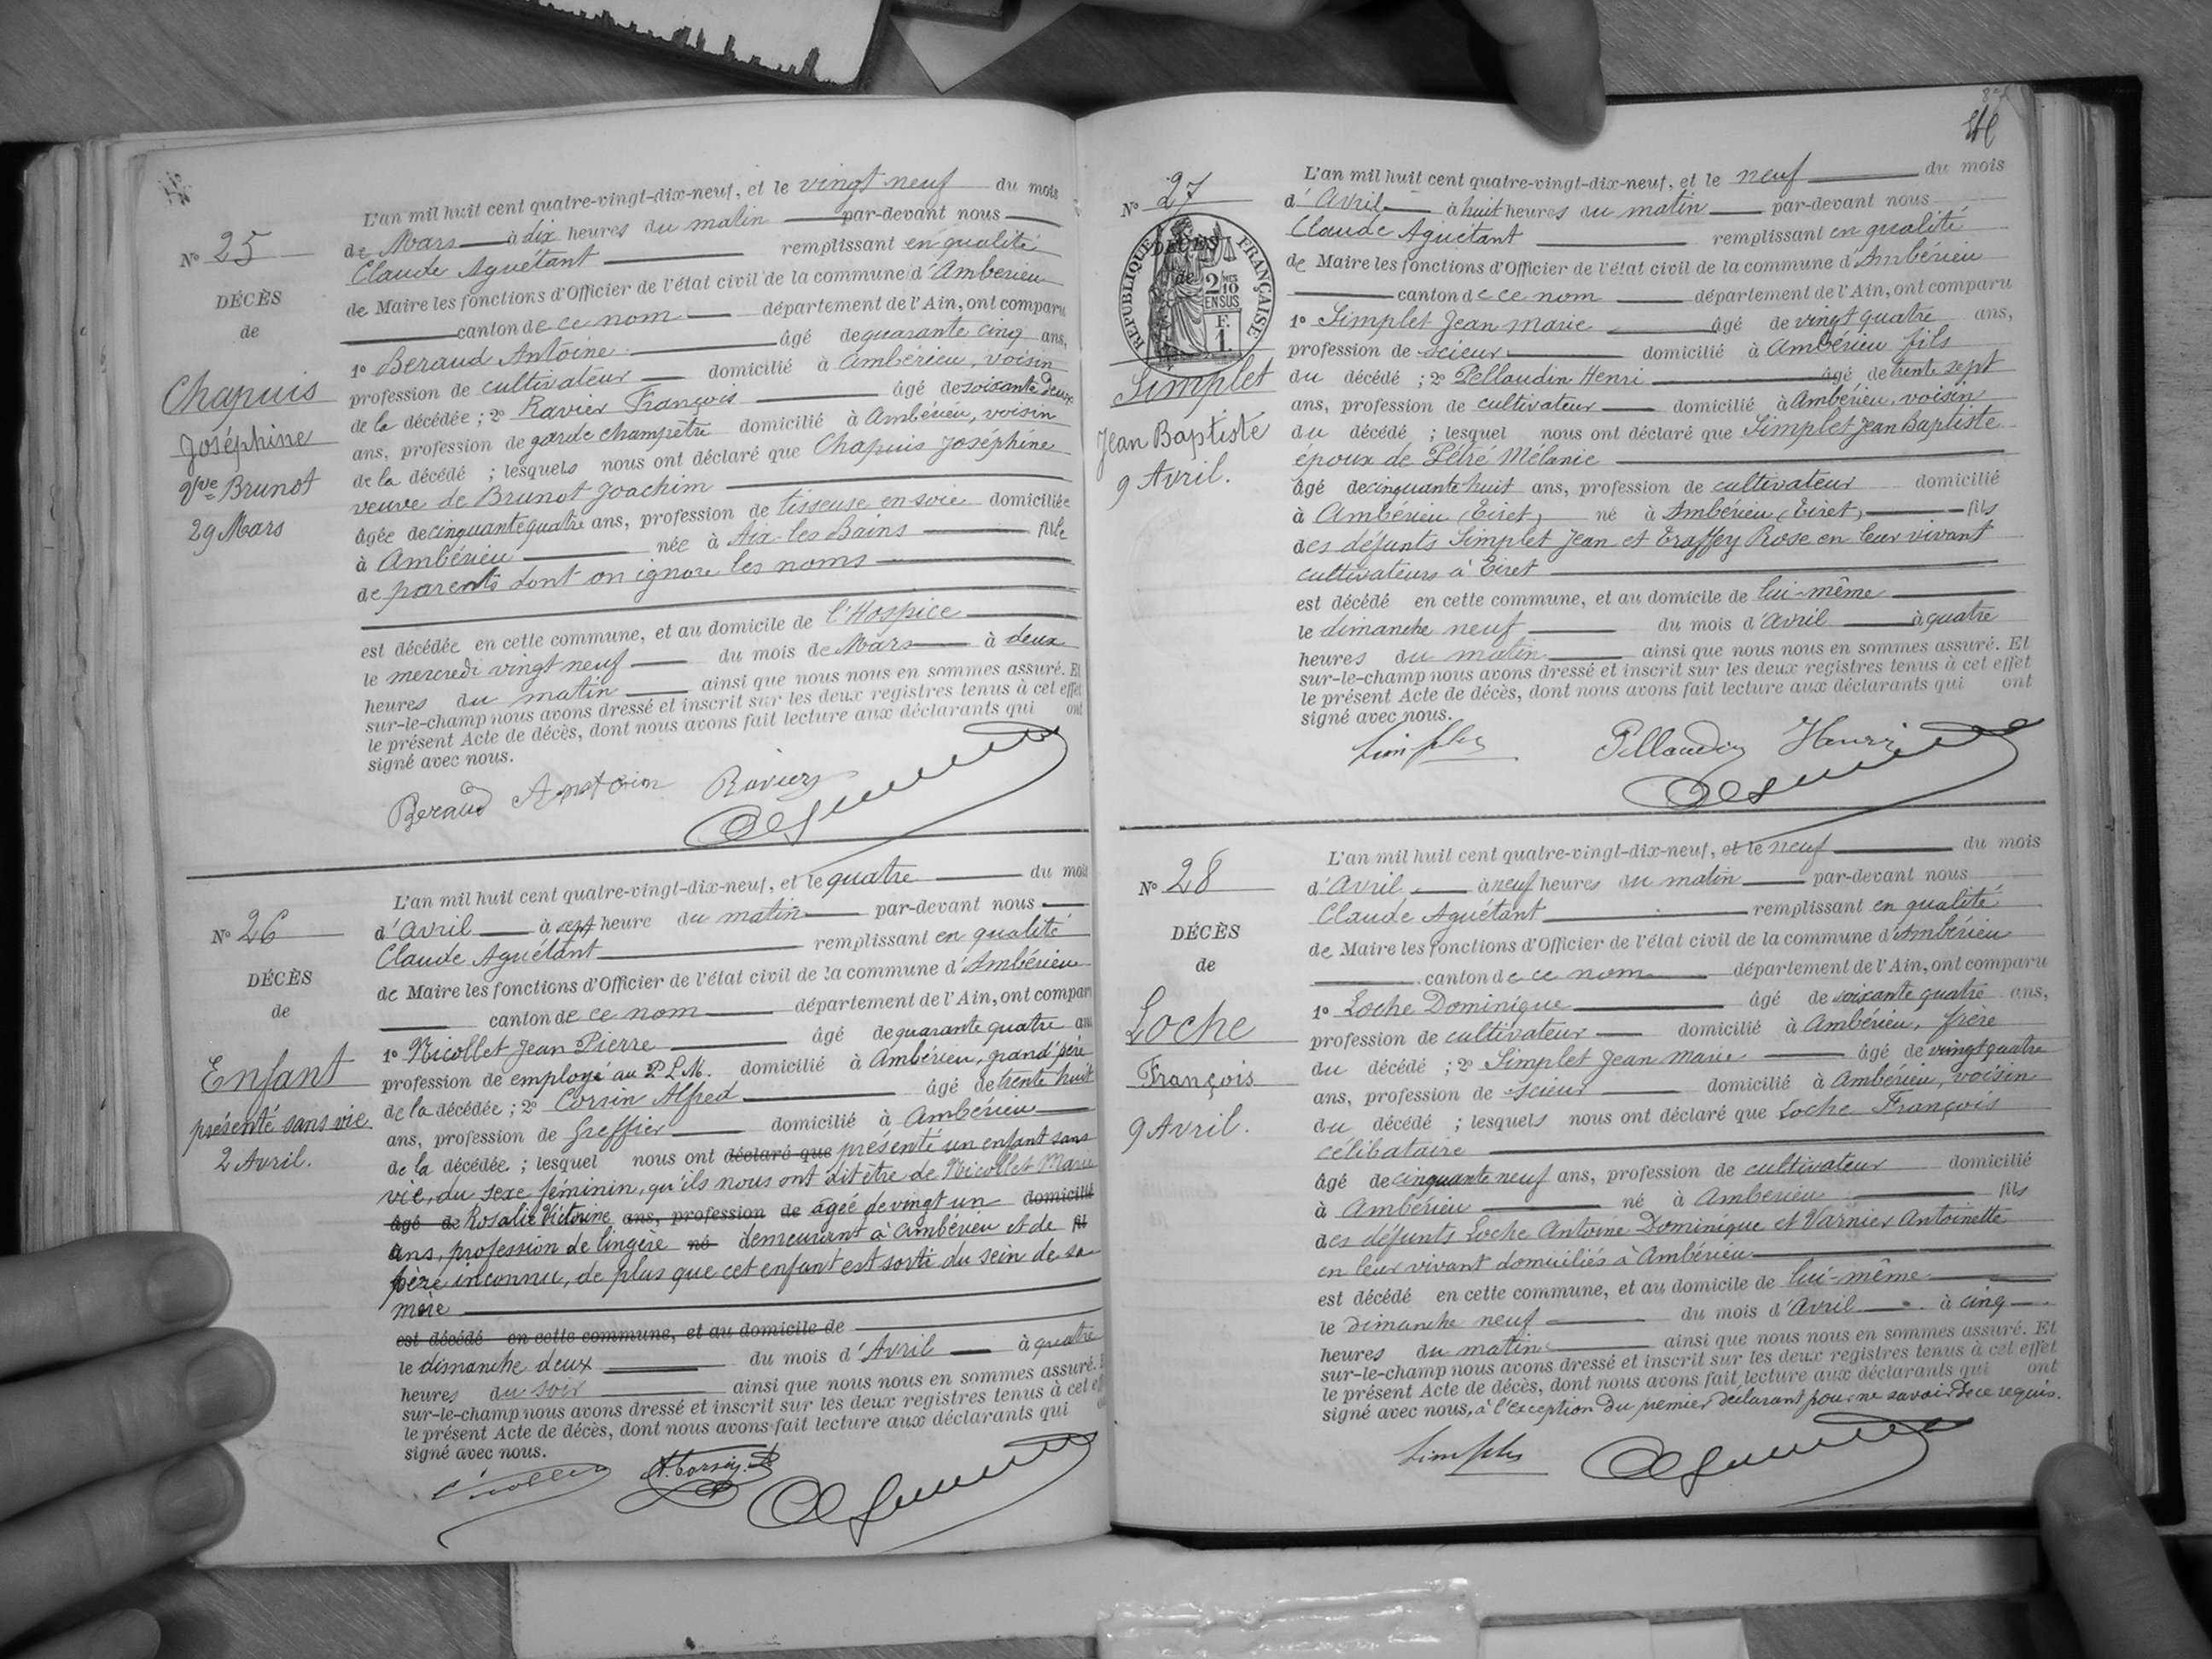 N° 25
DÉCÈS
de
Chapuis
Joséphine
Vve Brunot
29 Mars
L'an mil huit cent quatre-vingt-dix-neuf, et le vingt neuf du mois
de Mars à dix heures du matin par-devant nous
Claude Aguétant remplissant en qualité
de Maire les fonctions d'Officier de l'état civil de la commune d'Ambérieu
canton de ce nom département de l'Ain, ont comparu
1° Beraud Antoine âgé de quarante cinq ans,
profession de cultivateur domicilié à Ambérieu, voisin
de la décédée ; 2° Ravier François âgé de soixante deux
ans, profession de garde champêtre domicilié à Ambérieu, voisin
de la décédé ; lesquels nous ont déclaré que Chapuis Joséphine
veuve de Brunot Joachim
âgée de cinquante quatre ans, profession de tisseuse en soie domiciliée
à Ambérieu née à Aix-les-Bains fille
de parents dont on ignore les noms
est décédée en cette commune, et au domicile de l'Hospice
le mercredi vingt neuf du mois de Mars à deux
heures du matin ainsi que nous nous en sommes assuré. Et
sur-le-champ nous avons dressé et inscrit sur les deux registres tenus à cet effet
le présent Acte de décès, dont nous avons fait lecture aux déclarants qui ont
signé avec nous.
Beraud Antoin Ravier
N° 26
DÉCÈS
de
Enfant
présenté sans vie
2 Avril.
L'an mil huit cent quatre-vingt-dix-neuf, et le quatre du mois
d'Avril à sept heure du matin par-devant nous
Claude Aguétant remplissant en qualité
de Maire les fonctions d'Officier de l'état civil de la commune d'Ambérieu
canton de ce nom département de l'Ain, ont compar
1° Nicollet Jean Pierre âgé de quarante quatre an
profession de employé au P.L.M. domicilié à Ambérieu, grand'père
de la décédée ; 2° Corsin Alfred âgé de trente huit
ans, profession de Greffier domicilié à Ambérieu
de la décédée ; lesquel nous ont déclaré que présenté un enfant sans
vie, du sexe féminin, qu'ils nous ont dit être de Nicollet Marie
âgé de Rosalie Victorine ans, profession de âgée de vingt un domicilié
ans, profession de lingère né demeurant à Ambérieu et de fil
père inconnu, de plus que cet enfant est sorti du sein de sa
mère
est décédé en cette commune, et au domicile de
le dimanche deux du mois d'Avril à quatre
heures du soir ainsi que nous nous en sommes assuré.
sur-le-champ nous avons dressé et inscrit sur les deux registres tenus à cet
le présent Acte de décès, dont nous avons fait lecture aux déclarants qui
signé avec nous.
A. Corsin
N° 27
DÉCÈS
de
RÉPUBLIQUE FRANÇAISE
2/10 EN SUS
F. 1
Simplet
Jean Baptiste
9 Avril.
L'an mil huit cent quatre-vingt-dix-neuf, et le neuf du mois
d'Avril à huit heures du matin par-devant nous
Claude Aguétant remplissant en qualité
de Maire les fonctions d'Officier de l'état civil de la commune d'Ambérieu
canton de ce nom département de l'Ain, ont comparu
1° Simplet Jean Marie âgé de vingt quatre ans,
profession de scieur domicilié à Ambérieu fils
du décédé ; 2° Pellaudin Henri âgé de trente sept
ans, profession de cultivateur domicilié à Ambérieu, voisin
du décédé ; lesquel nous ont déclaré que Simplet Jean Baptiste
époux de Pétré Mélanie
âgé de cinquante huit ans, profession de cultivateur domicilié
à Ambérieu (Tiret) né à Ambérieu (Tiret) fils
des défunts Simplet Jean et Traffey Rose en leur vivant
cultivateurs à Tiret
est décédé en cette commune, et au domicile de lui-même
le dimanche neuf du mois d'Avril à quatre
heures du matin ainsi que nous nous en sommes assuré. Et
sur-le-champ nous avons dressé et inscrit sur les deux registres tenus à cet effet
le présent Acte de décès, dont nous avons fait lecture aux déclarants qui ont
signé avec nous.
Simplet Pellaudin Henri
N° 28
DÉCÈS
de
Loche
François
9 Avril.
L'an mil huit cent quatre-vingt-dix-neuf, et le neuf du mois
d'Avril à neuf heures du matin par-devant nous
Claude Aguétant remplissant en qualité
de Maire les fonctions d'Officier de l'état civil de la commune d'Ambérieu
canton de ce nom département de l'Ain, ont comparu
1° Loche Dominique âgé de soixante quatre ans,
profession de cultivateur domicilié à Ambérieu, frère
du décédé ; 2° Simplet Jean Marie âgé de vingt quatre
ans, profession de scieur domicilié à Ambérieu, voisin
du décédé ; lesquels nous ont déclaré que Loche François
célibataire
âgé de cinquante neuf ans, profession de cultivateur domicilié
à Ambérieu né à Ambérieu fils
des défunts Loche Antoine Dominique et Varnier Antoinette
en leur vivant domiciliés à Ambérieu
est décédé en cette commune, et au domicile de lui-même
le dimanche neuf du mois d'Avril à cinq
heures du matin ainsi que nous nous en sommes assuré. Et
sur-le-champ nous avons dressé et inscrit sur les deux registres tenus à cet effet
le présent Acte de décès, dont nous avons fait lecture aux déclarants qui ont
signé avec nous, à l'exception du premier déclarant pour ne savoir de ce requis.
Simplet